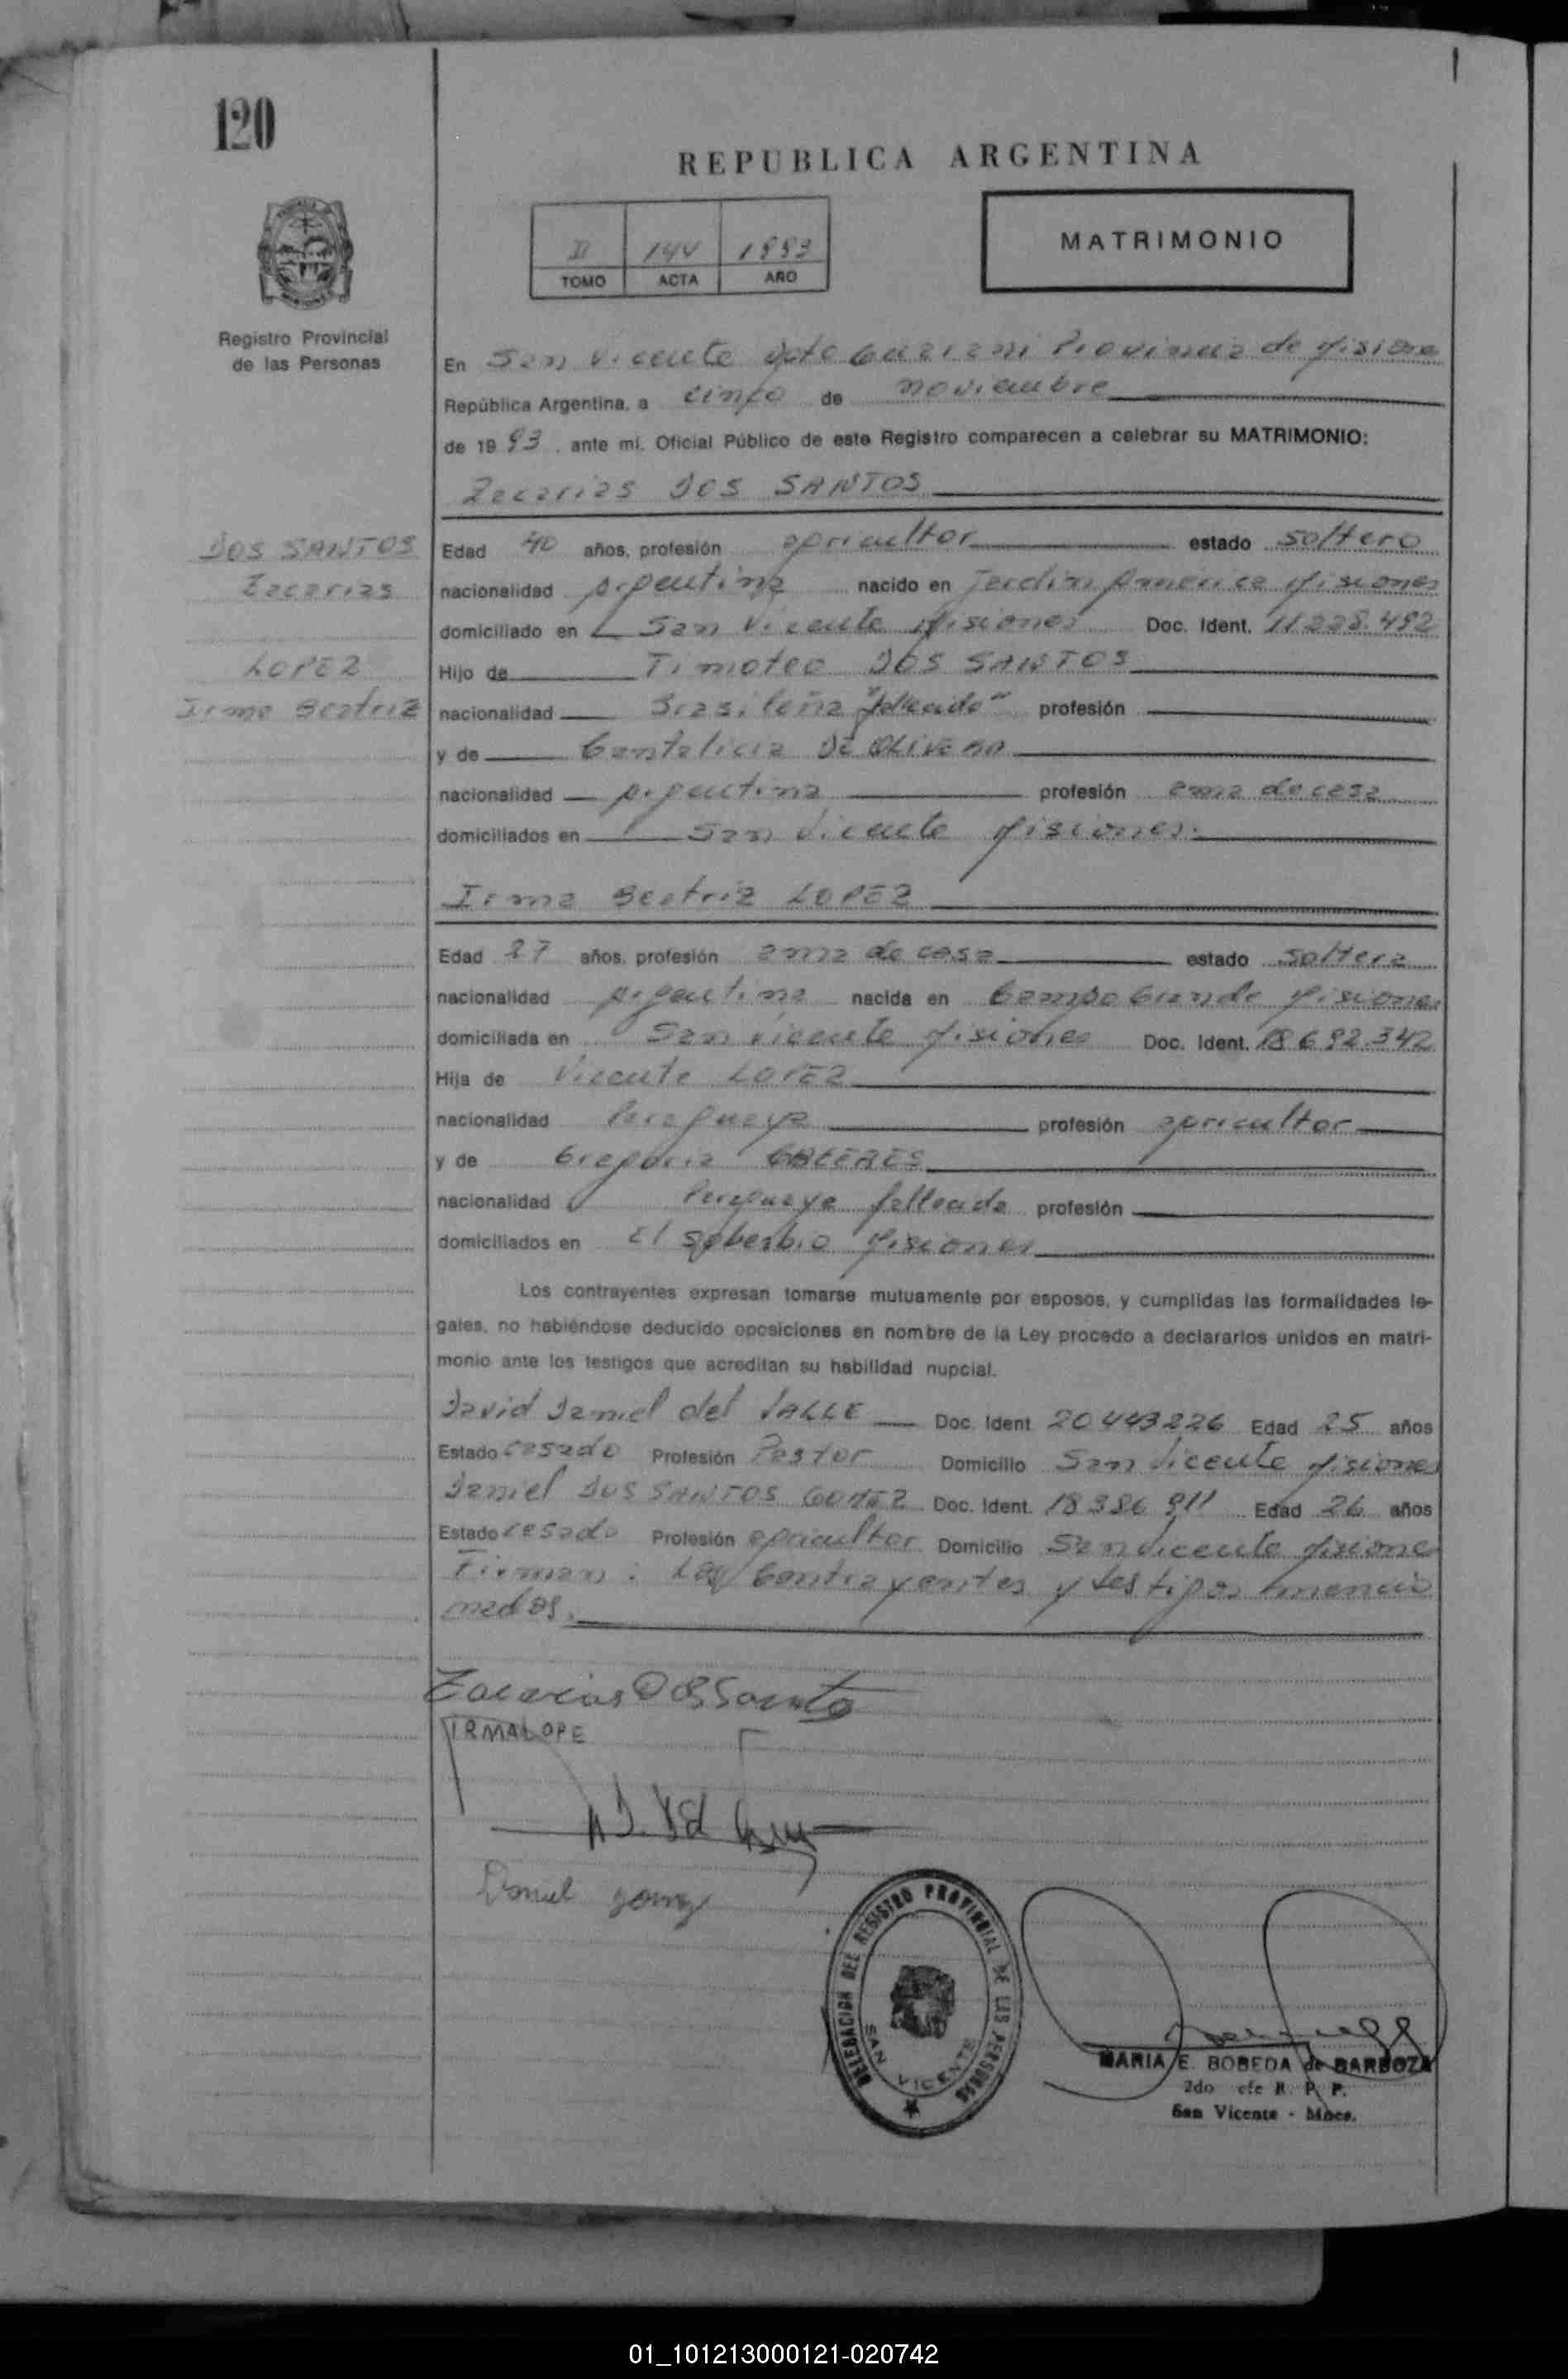 120
REPUBLICA ARGENTINA
II 144 1993
TOMO ACTA AÑO
MATRIMONIO
Registro Provincial
de las Personas
En San Vicente Dpto Guarani Provincia de Misiones
República Argentina, a cinco de noviembre
de 1993, ante mi, Oficial Público de este Registro comparecen a celebrar su MATRIMONIO:
Zacarias DOS SANTOS
DOS SANTOS
Zacarias
LOPEZ
Irma Beatriz
Edad 40 años, profesión agricultor estado soltero
nacionalidad argentina nacido en Jardin America Misiones
domiciliado en San Vicente Misiones Doc. Ident. 11.228.492
Hijo de Timoteo DOS SANTOS
nacionalidad Brasileña "fallecido" profesión
y de Cantalicia DE OLIVERA
nacionalidad argentina profesión ama de casa
domiciliados en San Vicente Misiones.
Irma Beatriz LOPEZ
Edad 27 años, profesión ama de casa estado soltera
nacionalidad argentina nacida en Campo Grande Misiones
domiciliada en San Vicente Misiones Doc. Ident. 18.692.342
Hija de Vicente LOPEZ
nacionalidad Paraguaya profesión agricultor
y de Gregoria CACERES
nacionalidad Paraguaya profesión
domiciliados en El Soberbio Misiones
Los contrayentes expresan tomarse mutuamente por esposos, y cumplidas las formalidades le-
gales, no habiéndose deducido oposiciones en nombre de la Ley procedo a declararlos unidos en matri-
monio ante los testigos que acreditan su habilidad nupcial.
David Daniel del VALLE Doc. Ident 20443226 Edad 25 años
Estado casado Profesión Pastor Domicilio San Vicente Misiones
Daniel DOS SANTOS GOMEZ Doc. Ident. 18.386 911 Edad 26 años
Estado casado Profesión agricultor Domicilio San Vicente Misiones
Firman: Los Contrayentes y testigos mencio
nados.
Zacarias Dos Santo
IRMALOPE
Daniel gomez
DELEGACION DEL REGISTRO PROVINCIAL DE LAS PERSONAS
SAN VICENTE
MARIA E. BOBEDA de BARBOZA
2do efe R. P. P.
San Vicente - Mnes.
01_101213000121-020742